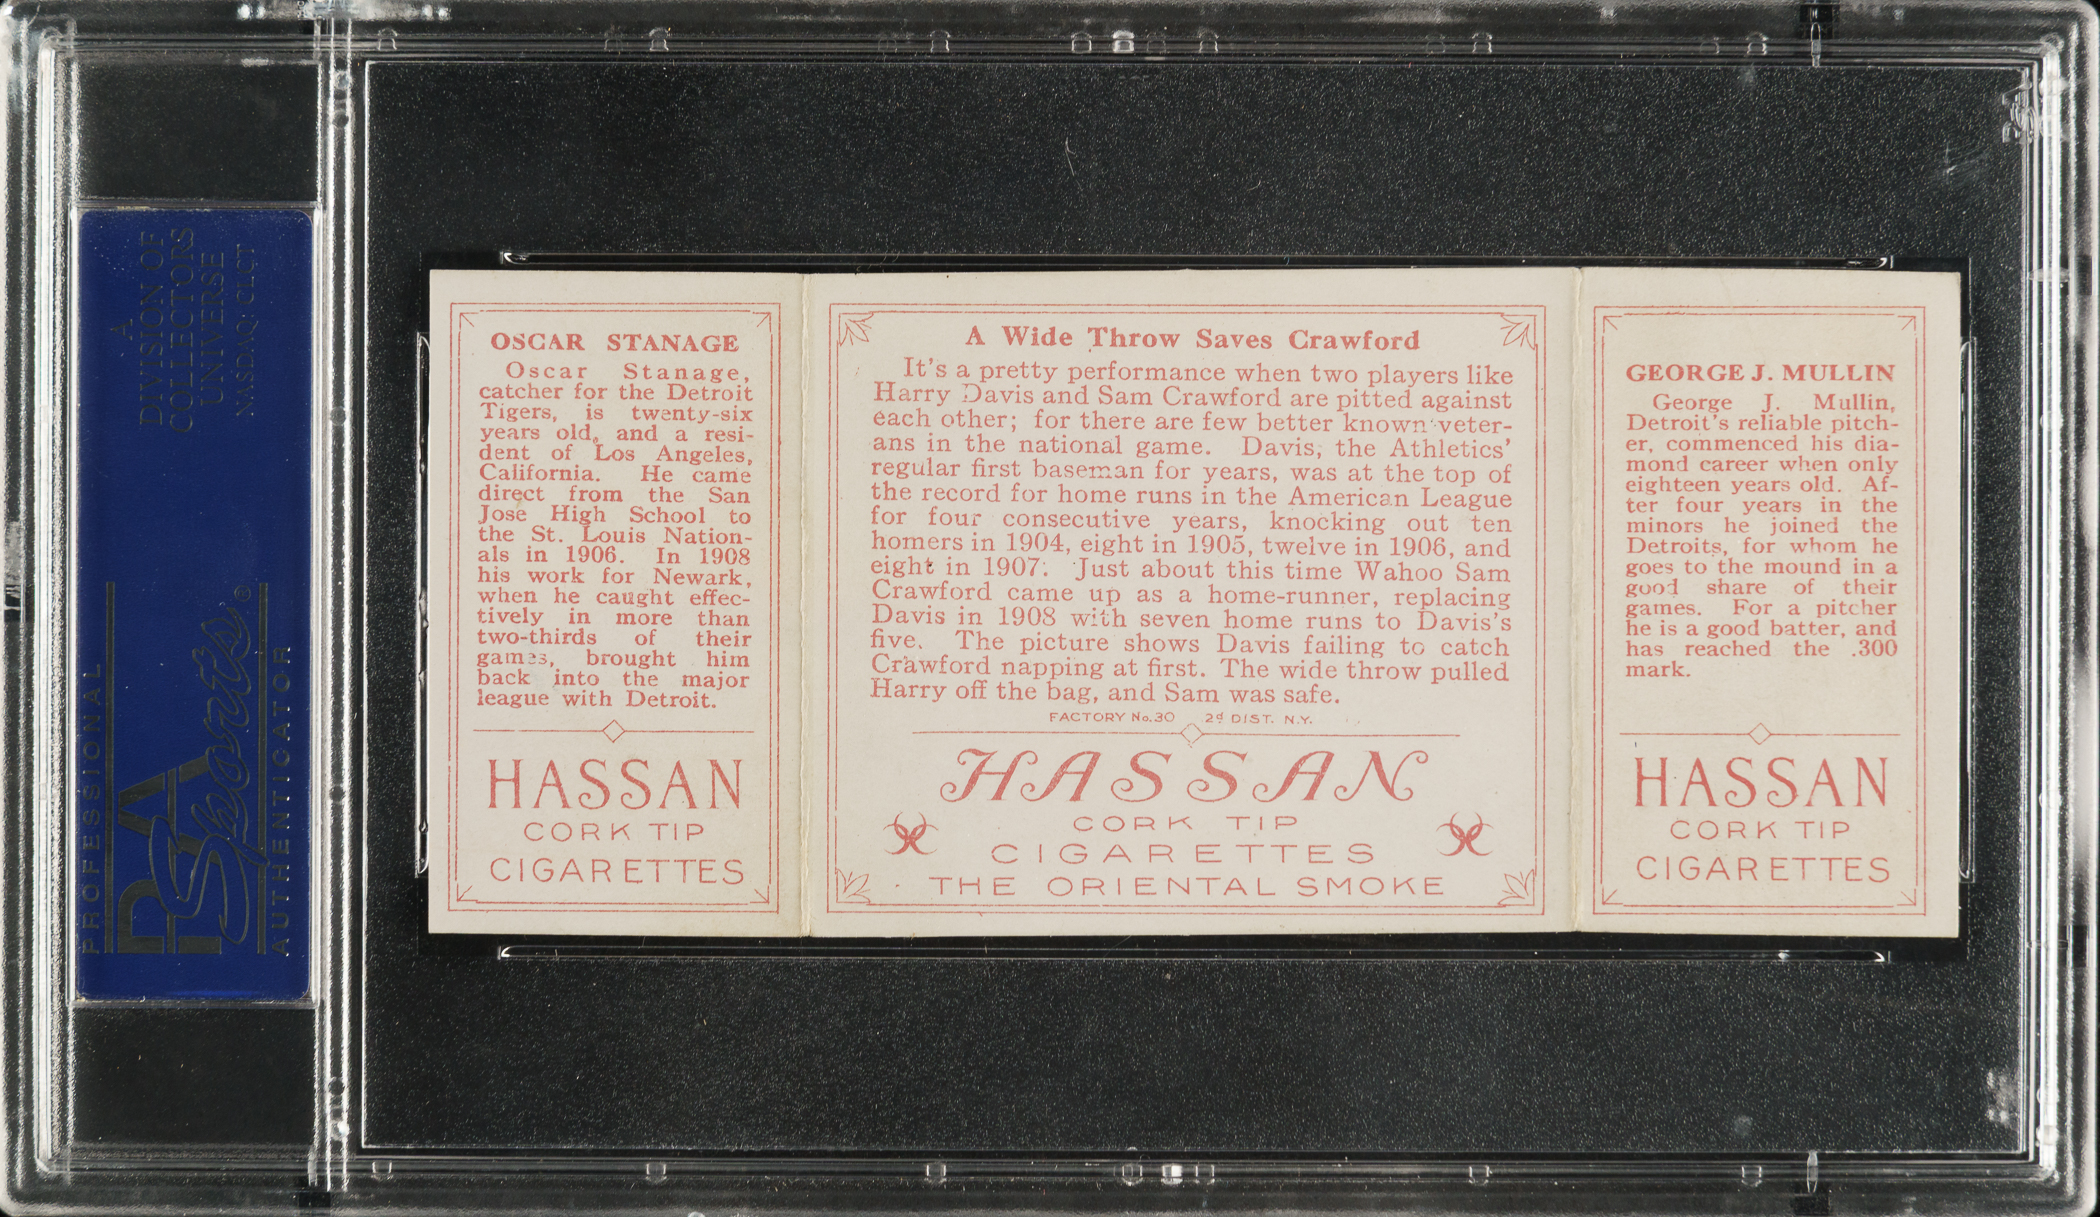 A
DIVISION OF
COLLECTORS
UNIVERSE
NASDAQ: CLCT
PROFESSIONAL
PSA
Sports®
AUTHENTICATOR
OSCAR STANAGE
Oscar Stanage,
catcher for the Detroit
Tigers, is twenty-six
years old, and a resi-
dent of Los Angeles,
California. He came
direct from the San
Jose High School to
the St. Louis Nation-
als in 1906. In 1908
his work for Newark,
when he caught effec-
tively in more than
two-thirds of their
games, brought him
back into the major
league with Detroit.
HASSAN
CORK TIP
CIGARETTES
A Wide Throw Saves Crawford
It's a pretty performance when two players like
Harry Davis and Sam Crawford are pitted against
each other; for there are few better known veter-
ans in the national game. Davis, the Athletics'
regular first baseman for years, was at the top of
the record for home runs in the American League
for four consecutive years, knocking out ten
homers in 1904, eight in 1905, twelve in 1906, and
eight in 1907. Just about this time Wahoo Sam
Crawford came up as a home-runner, replacing
Davis in 1908 with seven home runs to Davis's
five. The picture shows Davis failing to catch
Crawford napping at first. The wide throw pulled
Harry off the bag, and Sam was safe.
FACTORY No. 30 2d DIST. N.Y.
HASSAN
CORK TIP
CIGARETTES
THE ORIENTAL SMOKE
GEORGE J. MULLIN
George J. Mullin,
Detroit's reliable pitch-
er, commenced his dia-
mond career when only
eighteen years old. Af-
ter four years in the
minors he joined the
Detroits, for whom he
goes to the mound in a
good share of their
games. For a pitcher
he is a good batter, and
has reached the .300
mark.
HASSAN
CORK TIP
CIGARETTES